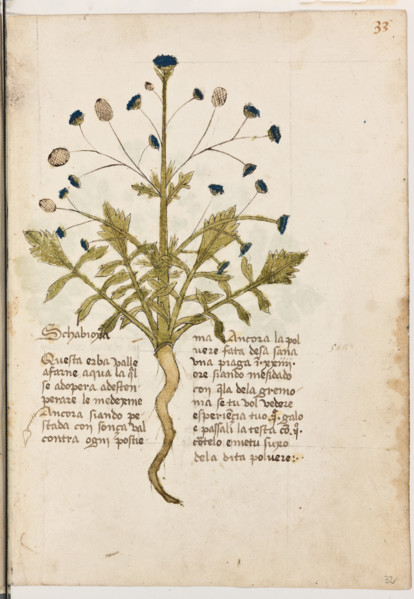 33
Schabiosa
Questa erba valle
afarne aqua la ql
se adopera adesten
perare le medexme
Ancora siando pe
stada con sonça val
contra ogni postie
ma Ancora la pol
vere fata desa sana
vna piaga ĩ. xxiiij.
ore siando mesidado
con q̃la dela gremo
nia se tu vol vedere
esperiẽcia tuo .j. galo
e passali la testa cõ .j.
cortelo e metu suxo
dela dita polvere:
32